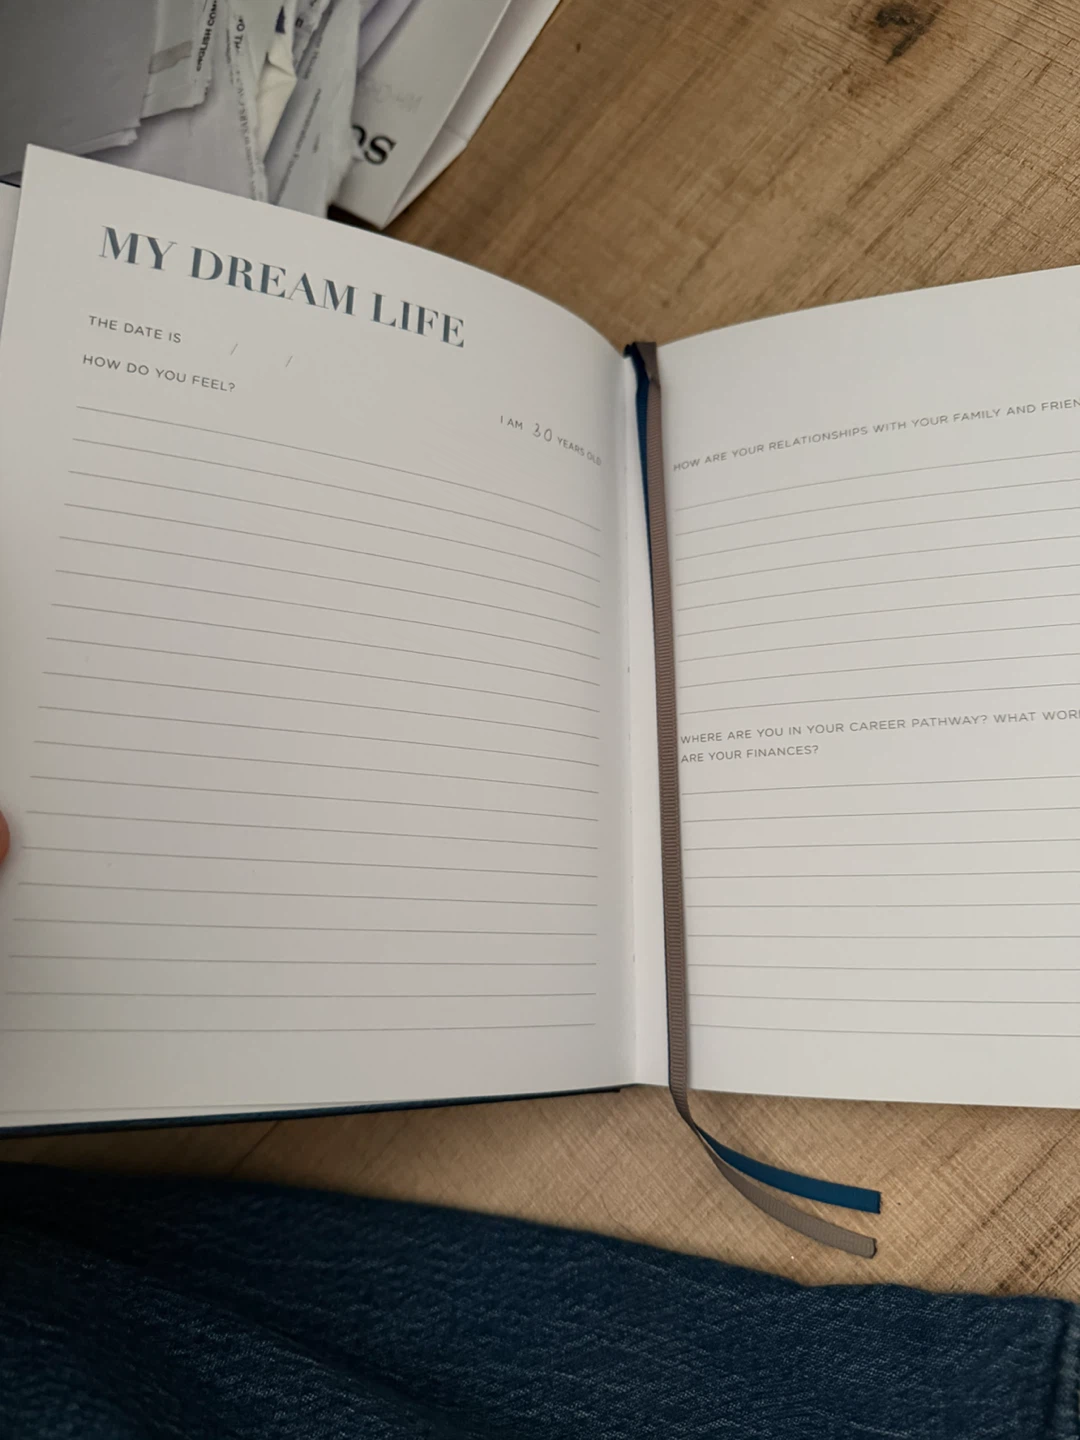 ENGLISH
MY DREAM LIFE
THE DATE IS / /
HOW DO YOU FEEL?
I AM 30 YEARS OLD
HOW ARE YOUR RELATIONSHIPS WITH YOUR FAMILY AND
WHERE ARE YOU IN YOUR CAREER PATHWAY? WHAT
ARE YOUR FINANCES?